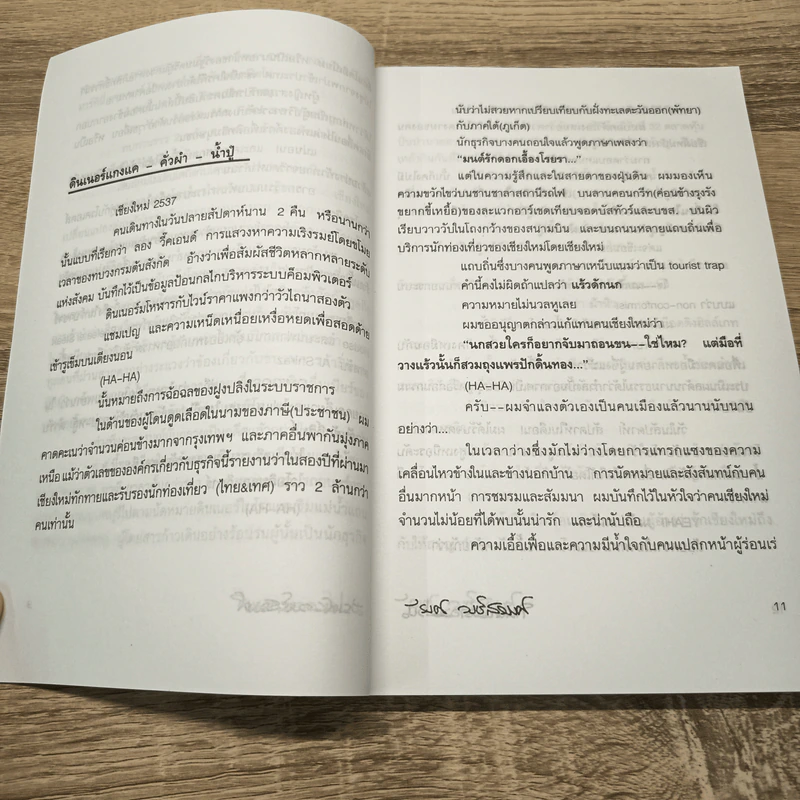 ดินเนอร์แกงแค – คั่วผำ – น้ำปู๋
เชียงใหม่ 2537
คนเดินทางในวันปลายสัปดาห์นาน 2 คืน หรือนานกว่า
นั้นแบบที่เรียกว่า ลอง วี้คเอนด์ การแสวงหาความเริงรมย์โดยขโมย
เวลาของทบวงกรมต้นสังกัด อ้างว่าเพื่อสัมผัสชีวิตหลากหลายระดับ
แห่งสังคม บันทึกไว้เป็นข้อมูลป้อนกลไกบริหารระบบคือมพิวเตอร์
ดินเนอร์มโหฬารกับไวน์ราคาแพงกว่าวัวไถนาสองตัว
แชมเปญ และความเหน็ดเหนื่อยเหงื่อหยดเพื่อสอดด้าย
เข้ารูเข็มบนเตียงนอน
(HA-HA)
นั้นหมายถึงการฉ้อฉลของฝูงปลิงในระบบราชการ
ในด้านของผู้โดนดูดเลือดในนามของภาษี(ประชาชน) ผม
คาดคะเนว่าจำนวนค่อนข้างมากจากรุงเทพฯ และภาคอื่นพากันมุ่งภาค
เหนือ แม้ว่าตัวเลขขององค์กรเกี่ยวกับธุรกิจนี้รายงานว่าในสองปีที่ผ่านมา
เชียงใหม่ทักทายและรับรองนักท่องเที่ยว (ไทย&เทศ) ราว 2 ล้านกว่า
คนเท่านั้น
นับว่าไม่สวยหากเปรียบเทียบกับฝั่งทะเลตะวันออก(พัทยา)
กับภาคใต้(ภูเก็ต)
นักธุรกิจบางคนถอนใจแล้วพูดภาษาเพลงว่า
“มนต์รักดอกเอื้องโรยรา...”
แต่ในความรู้สึกและในสายตาของฝุ่นดิน ผมมองเห็น
ความขวักไขว่บนชานชาลาสถานีรถไฟ บนลานคอนกรีท(ค่อนข้างรุงรัง
ขยากขี้เหยื้อ)ของละแวกอาร์เขดเทียบจอดบัสทัวร์และบขส. บนผิว
เรียบวาววับในโถงกว้างของสนามบิน และบนถนนหลายแถบถิ่นเพื่อ
บริการนักท่องเที่ยวของเชียงใหม่โดยเชียงใหม่
แถบถิ่นซึ่งบางคนพูดภาษาเหน็บแนมว่าเป็น tourist trap
คำนี้คงไม่ผิดถ้าแปลว่า แร้วดักนก
ความหมายไม่นวลหูเลย
ผมขออนุญาตกล่าวแก้แทนคนเชียงใหม่ว่า
“นกสวยใครก็อยากจับมาถอนขน––ใช่ไหม? แต่มือที่
วางแร้วนั้นก็สวมถุงแพรปักดิ้นทอง...”
(HA-HA)
ครับ––ผมจำแลงตัวเองเป็นคนเมืองแล้วนานนับนาน
อย่างว่า...
ในเวลาว่างซึ่งมักไม่ว่างโดยการแทรกแซงของความ
เคลื่อนไหวข้างในและข้างนอกบ้าน การนัดหมายและสังสันทน์กับคน
อื่นมากหน้า การชมรมและสัมมนา ผมบันทึกไว้ในหัวใจว่าคนเชียงใหม่
จำนวนไม่น้อยที่ได้พบนั้นน่ารัก และน่านับถือ
ความเอื้อเฟื้อและความมีน้ำใจกับคนแปลกหน้าผู้ร่อนเร่
11